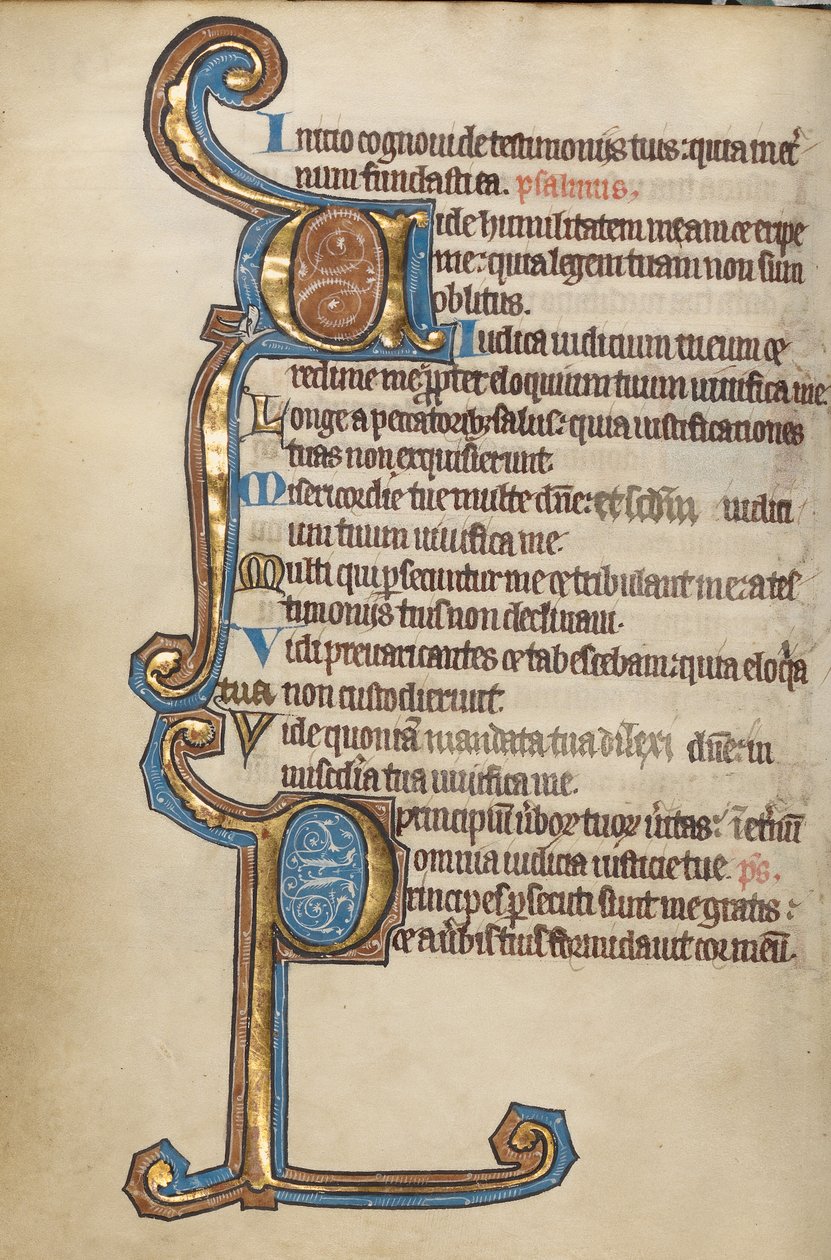 Inicio cognoui de testimonijs tuis: quia in et̾
num fundasti ea. psalmus,
Uide humilitatem meam et eripe
me: quia legem tuam non sum
oblitus.
Iudica iudicium meum et
redime me: p̱pter eloquium tuum uiuifica me.
Longe a peccatorib; salus: quia iustificationes
tuas non exquisierunt.
Misericordie tue multe dn̄e: et scdm̄ iudici
um tuum uiuifica me.
Multi qui ꝑsecuntur me et tribulant me: a tes
timonijs tuis non declinaui.
Vidi preuaricantes et tabescebam: quia eloq̾a
tua non custodierunt.
Vide quoniā mandata tua dilexi dn̄e: in
miscd̾ia tua uiuifica me.
Principiū u̾boꝝ tuoꝝ u̾itas: ī et̾nū
omnia iudicia iusticie tue. p̄s.
Principes ꝑsecuti sunt me gratis:
et a u̾bis tuis formidauit cor meū.